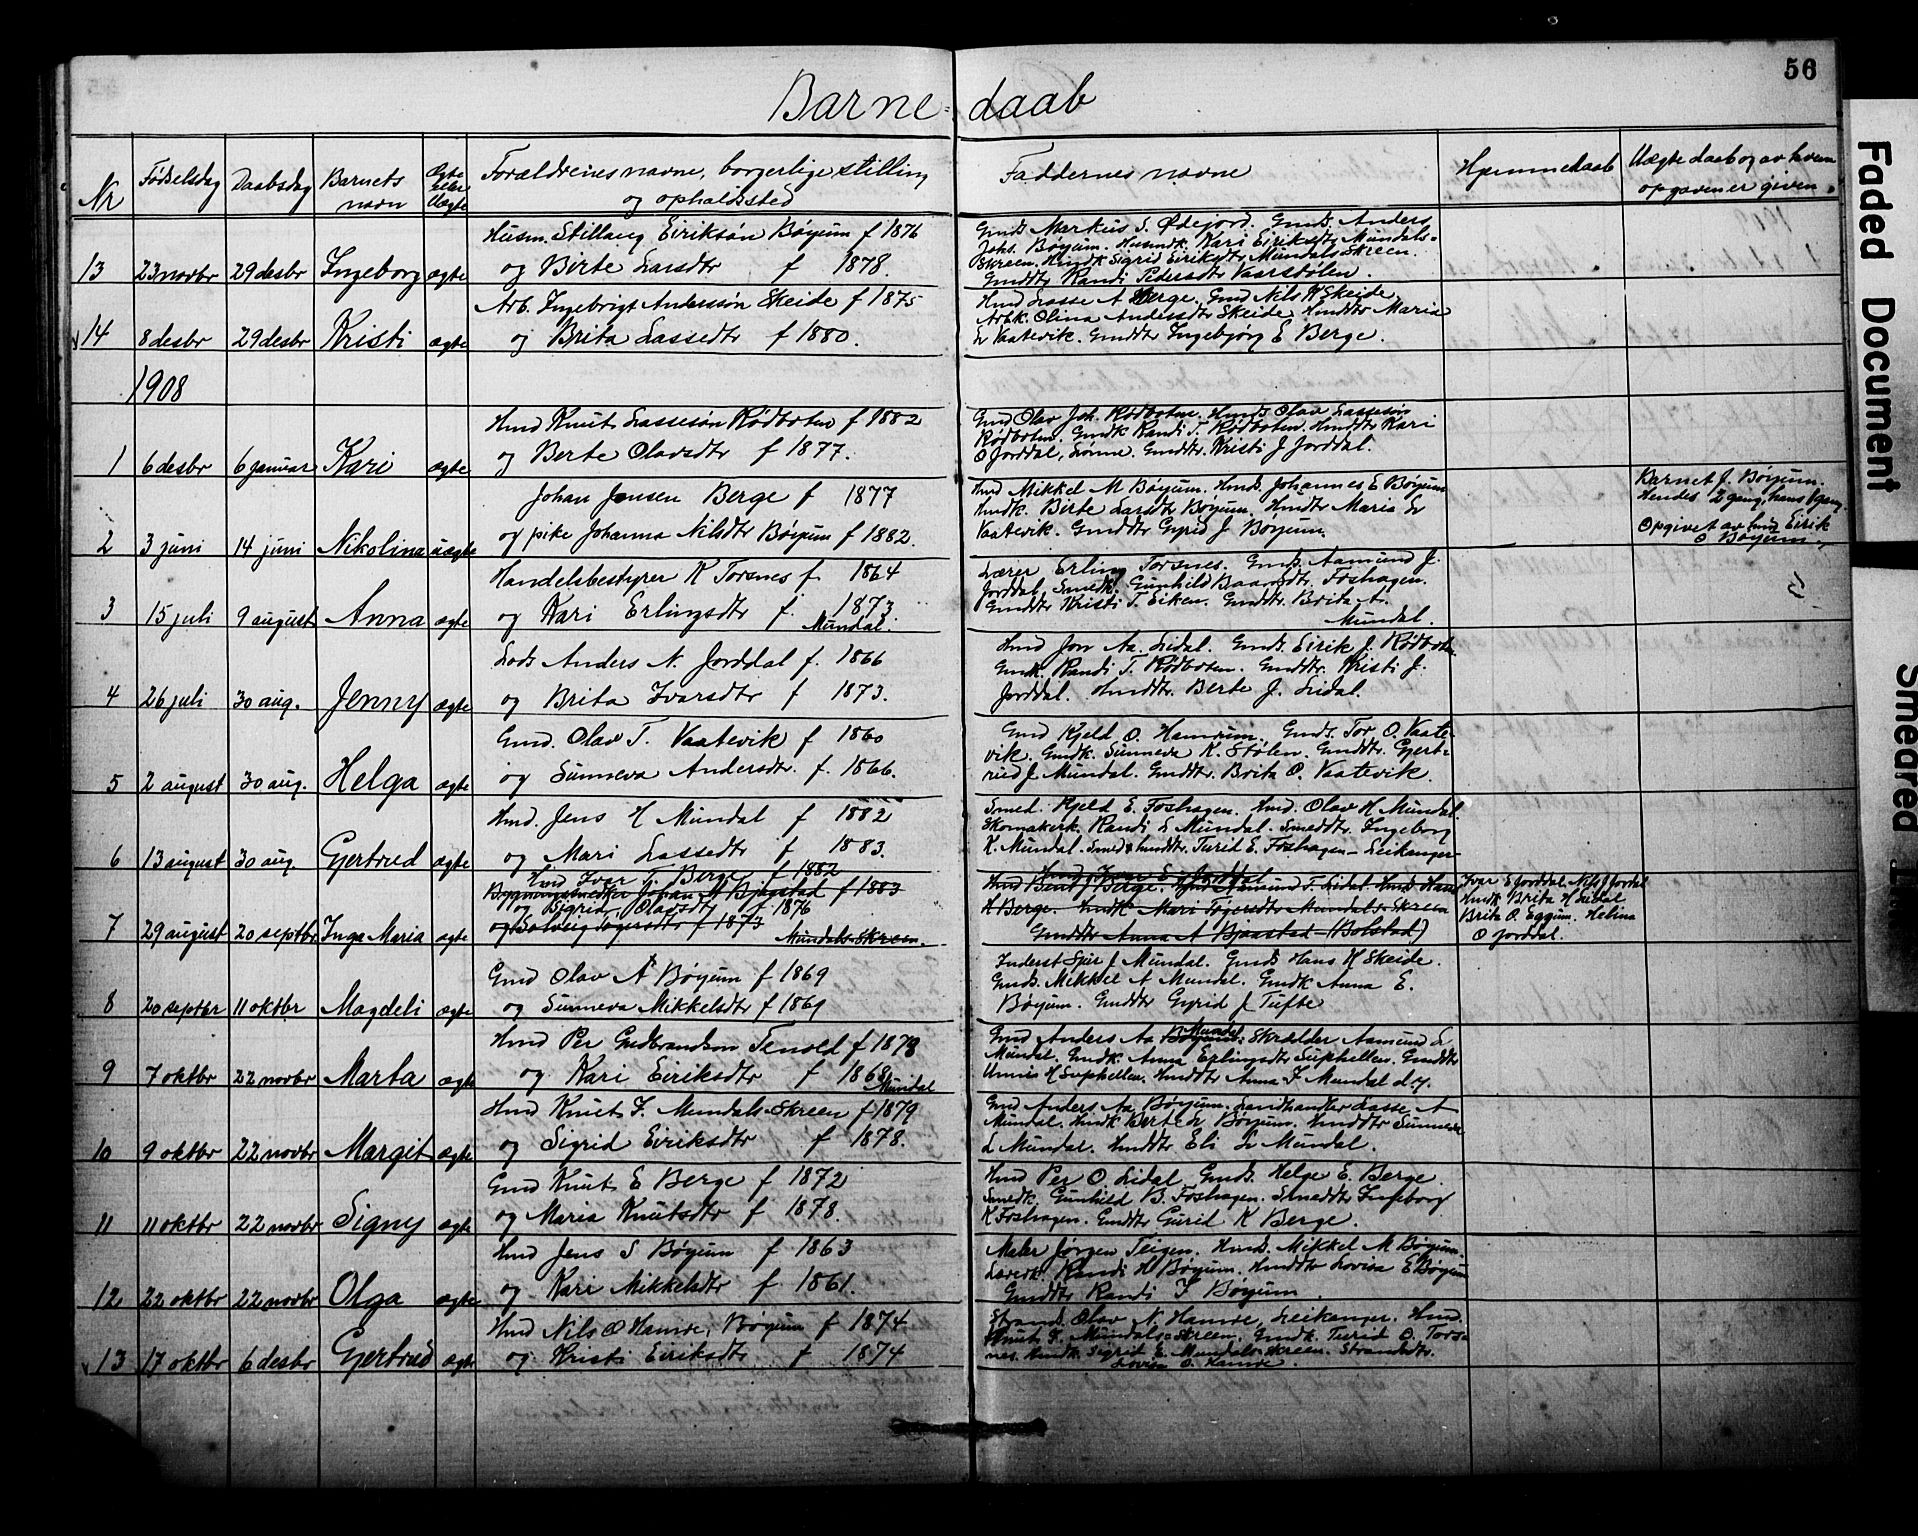 56
Barne daab
Nr
Fødselsdag
Daabsdag
Barnets navn
Ægte eller Uægte
Forældrenes navne, borgerlige stilling og opholdssted
Faddernes navne
Hjemmedaab
Uægte daab og av hvem opgaven er given.
13 23 novbr 29 desbr Ingeborg ægte
Husm. Stillaug Eirikson Bøyum f 1876
og Birte Larsdtr f 1878.
Gmds Markus S. Ødejord. Gmds. Anders
Johs. Bøyum. Husmdk. Kari Eiriksdtr Mundals-
Skreen. Hmdk Sigrid Eiriksdtr Mundals Skreen.
Gmddtr Randi Pedersdtr
14 8 desbr 29 desbr Kristi ægte
Arb. Ingebrigt Andersson Skeide f 1875
og Brita Lassedtr f 1880.
Hmd Lasse A Berge. Gmd Nils K Skeide
Arbk. Olina Andersdtr Skeide. Hmddtr Maria
L Vaatevik. Gmddtr Ingebjørg E Berge.
1908
1 6 desbr 6 januar Kari ægte
Hmd Knut Lassesøn Rødboten f 1882
og Berte Olavsdtr f 1877.
Gmd Olav Joh. Rødboten. Hmds Olav Lassesøn
Rødboten. Gmdk Randi T. Rødboten. Hmddtr Kari
O Jorddal, Gmddtr. Kristi J Jorddal.
2 3 juni 14 juni Nikolina uægte
Johan Jensen Berge f 1877
og pike Johanna Nilsdtr Bøyum f 1882.
Hmd Mikkel M Bøyum. Hmds. Johannes E Bøyum
Hmdk. Berte Larsdtr Bøyum. Hmddtr Maria L
Vaatevik. Gmddtr Gyrid J Bøyum.
Barnet f. Bøyum.
Hendes 2 gang, hans 1 gang
Opgivet av hmd Eirik
O Bøyum.
3 15 juli 9 august Anna ægte
Handelsbestyrer K Torsnes f. 1864
og Kari Erlingsdtr f. 1873
Mundal.
Lærer Erling Torsnes. Gmds. Aamund J.
Jorddal. Smedk. Gunhild Baardsdtr. Foshagen.
Gmddtr Kristi T. Eiken. Gmddtr. Brita A.
Mundal.
4 26 juli 30 aug. Jenny ægte
Lods Anders N. Jorddal f. 1866
og Brita Ivarsdtr f 1873.
Hmd Jon Aa. Lidal. Gmds. Eirik J. Rødboten.
Gmdk. Randi T. Rødboten. Gmddtr. Kristi J.
Jorddal. Hmddtr. Berte J. Lidal.
5 2 august 30 aug. Helga ægte
Gmd. Olav T. Vaatevik f 1860
og Sunneva Andersdtr. f. 1866.
Gmd Kjeld O. Hamrum. Gmds. Tor O. Vaate-
vik. Gmdk. Sunneva K. Stølen. Gmddtr. Gjert-
rud J. Mundal. Gmddtr. Brita O. Vaatevik.
6 13 august 30 aug. Gjertrud ægte
Hmd. Jens H Mundal f 1882
og Mari Lassedtr f 1883.
Smed. Kjeld E. Foshagen. Hmd. Olav H Mundal.
Skomakerk. Randi L Mundal. Smeddtr. Ingeborg
K. Mundal. Turid E. Foshagen - Leikanger
7 29 august 20 septbr Inga Maria ægte
Hmd Ivar T. Berge f 1882
Johan M Bjaastad f 1883
og Sigrid Olavsdtr f 1876
og Solveig f 1873
Mundals-Skreen.
Hmd Ivar E. Jorddal
Hmd Bent J Berge. T. Lidal. Hmds Hans
H Berge. Hmdk Mari Mundals-Skreen
Gmddtr Anna A Bjaastad (Bolstad)
Ivar E Jorddal. Nils J Jordal
Hmdk Brita H Lidal
Brita O. Eggum. Helina
O Jorddal.
8 20 septbr 11 oktbr Magdeli ægte
Gmd Olav A Bøyum f 1869
og Sunneva Mikkelsdtr f 1869
Inderst J Mundal. Gmds Hans H Skeide.
Gmds. Mikkel A Mundal. Gmdk Anna E.
Bøyum. Gmddtr Gyrid J Tufte
9 7 oktbr 22 novbr Marta ægte
Hmd Per Gudbrandson Tenold f 1878
og Kari Eiriksdtr f 1868
Mundal
Gmd Anders Aa Bøyum. Mundal. Skrælder Aamund L
Mundal. Gmdk. Anna Erlingsdtr Suphellen. Gmddtr
Unnis H Suphellen. Hmddtr Anna F Mundal d.y.
10 9 oktbr 22 novbr Margit ægte
Hmd Knut F. Mundals-Skreen f 1879
og Sigrid Eiriksdtr f 1878.
Gmd Anders Aa Bøyum. Landhandler Lasse A
Mundal. Hmdk Berte L Bøyum. Hmddtr Sunneva
L Mundal. Hmddtr Eli L Mundal.
11 11 oktbr 22 novbr Signy ægte
Gmd Knut E Berge f 1872
og Maria Knutsdtr f 1878.
Hmd Per O. Lidal. Gmds. Helge E. Berge.
Smedk. Gunhild B. Foshagen. Smeddtr Ingeborg
K Foshagen. Gmddtr Gurid K Berge.
12 22 oktbr 22 novbr Olga ægte
Hmd Jens S Bøyum f 1863
og Kari Mikkelsdtr f 1861.
Maler Jørgen Teigen. Hmds. Mikkel M Bøyum.
Lærerk. Randi H Bøyum. Hmddtr Lovisa E Bøyum
Gmddtr Randi F Bøyum.
13 17 oktbr 6 desbr Gjertrud ægte
Hmd Nils O Hamre, Bøyum f 1874
og Kristi Eiriksdtr f 1874
Strands. Olav N. Hamre, Leikanger. Hmd.
Knut F. Mundals-Skreen. Gmdk. Turid O. Tors-
nes. Hmdk. Sigrid E. Mundals-Skreen. Strandsdtr.
Lovisa O. Hamre.
Faded Document
Smeared